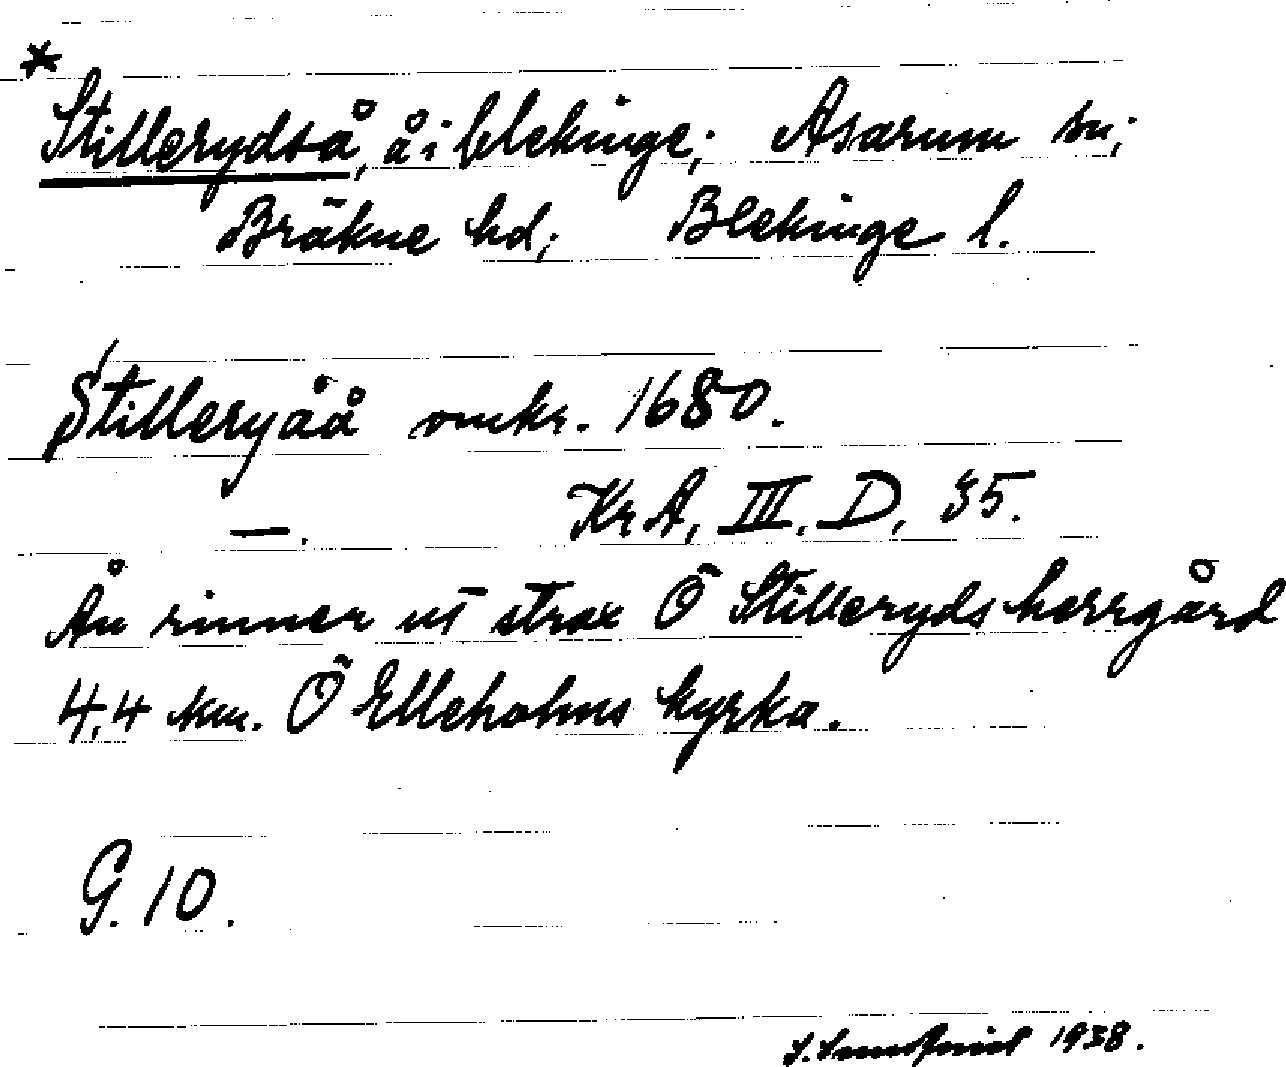 * Stillerydså, å i Blekinge; Asarum sn;
Bräkne hd; Blekinge l.
Stilleryåå omkr. 1680.
—. KrA, III. D, 35.
Ån rinner ut strax Ö Stilleryds herrgård
4,4 km. Ö Elleholms kyrka.
G. 10.
1938.